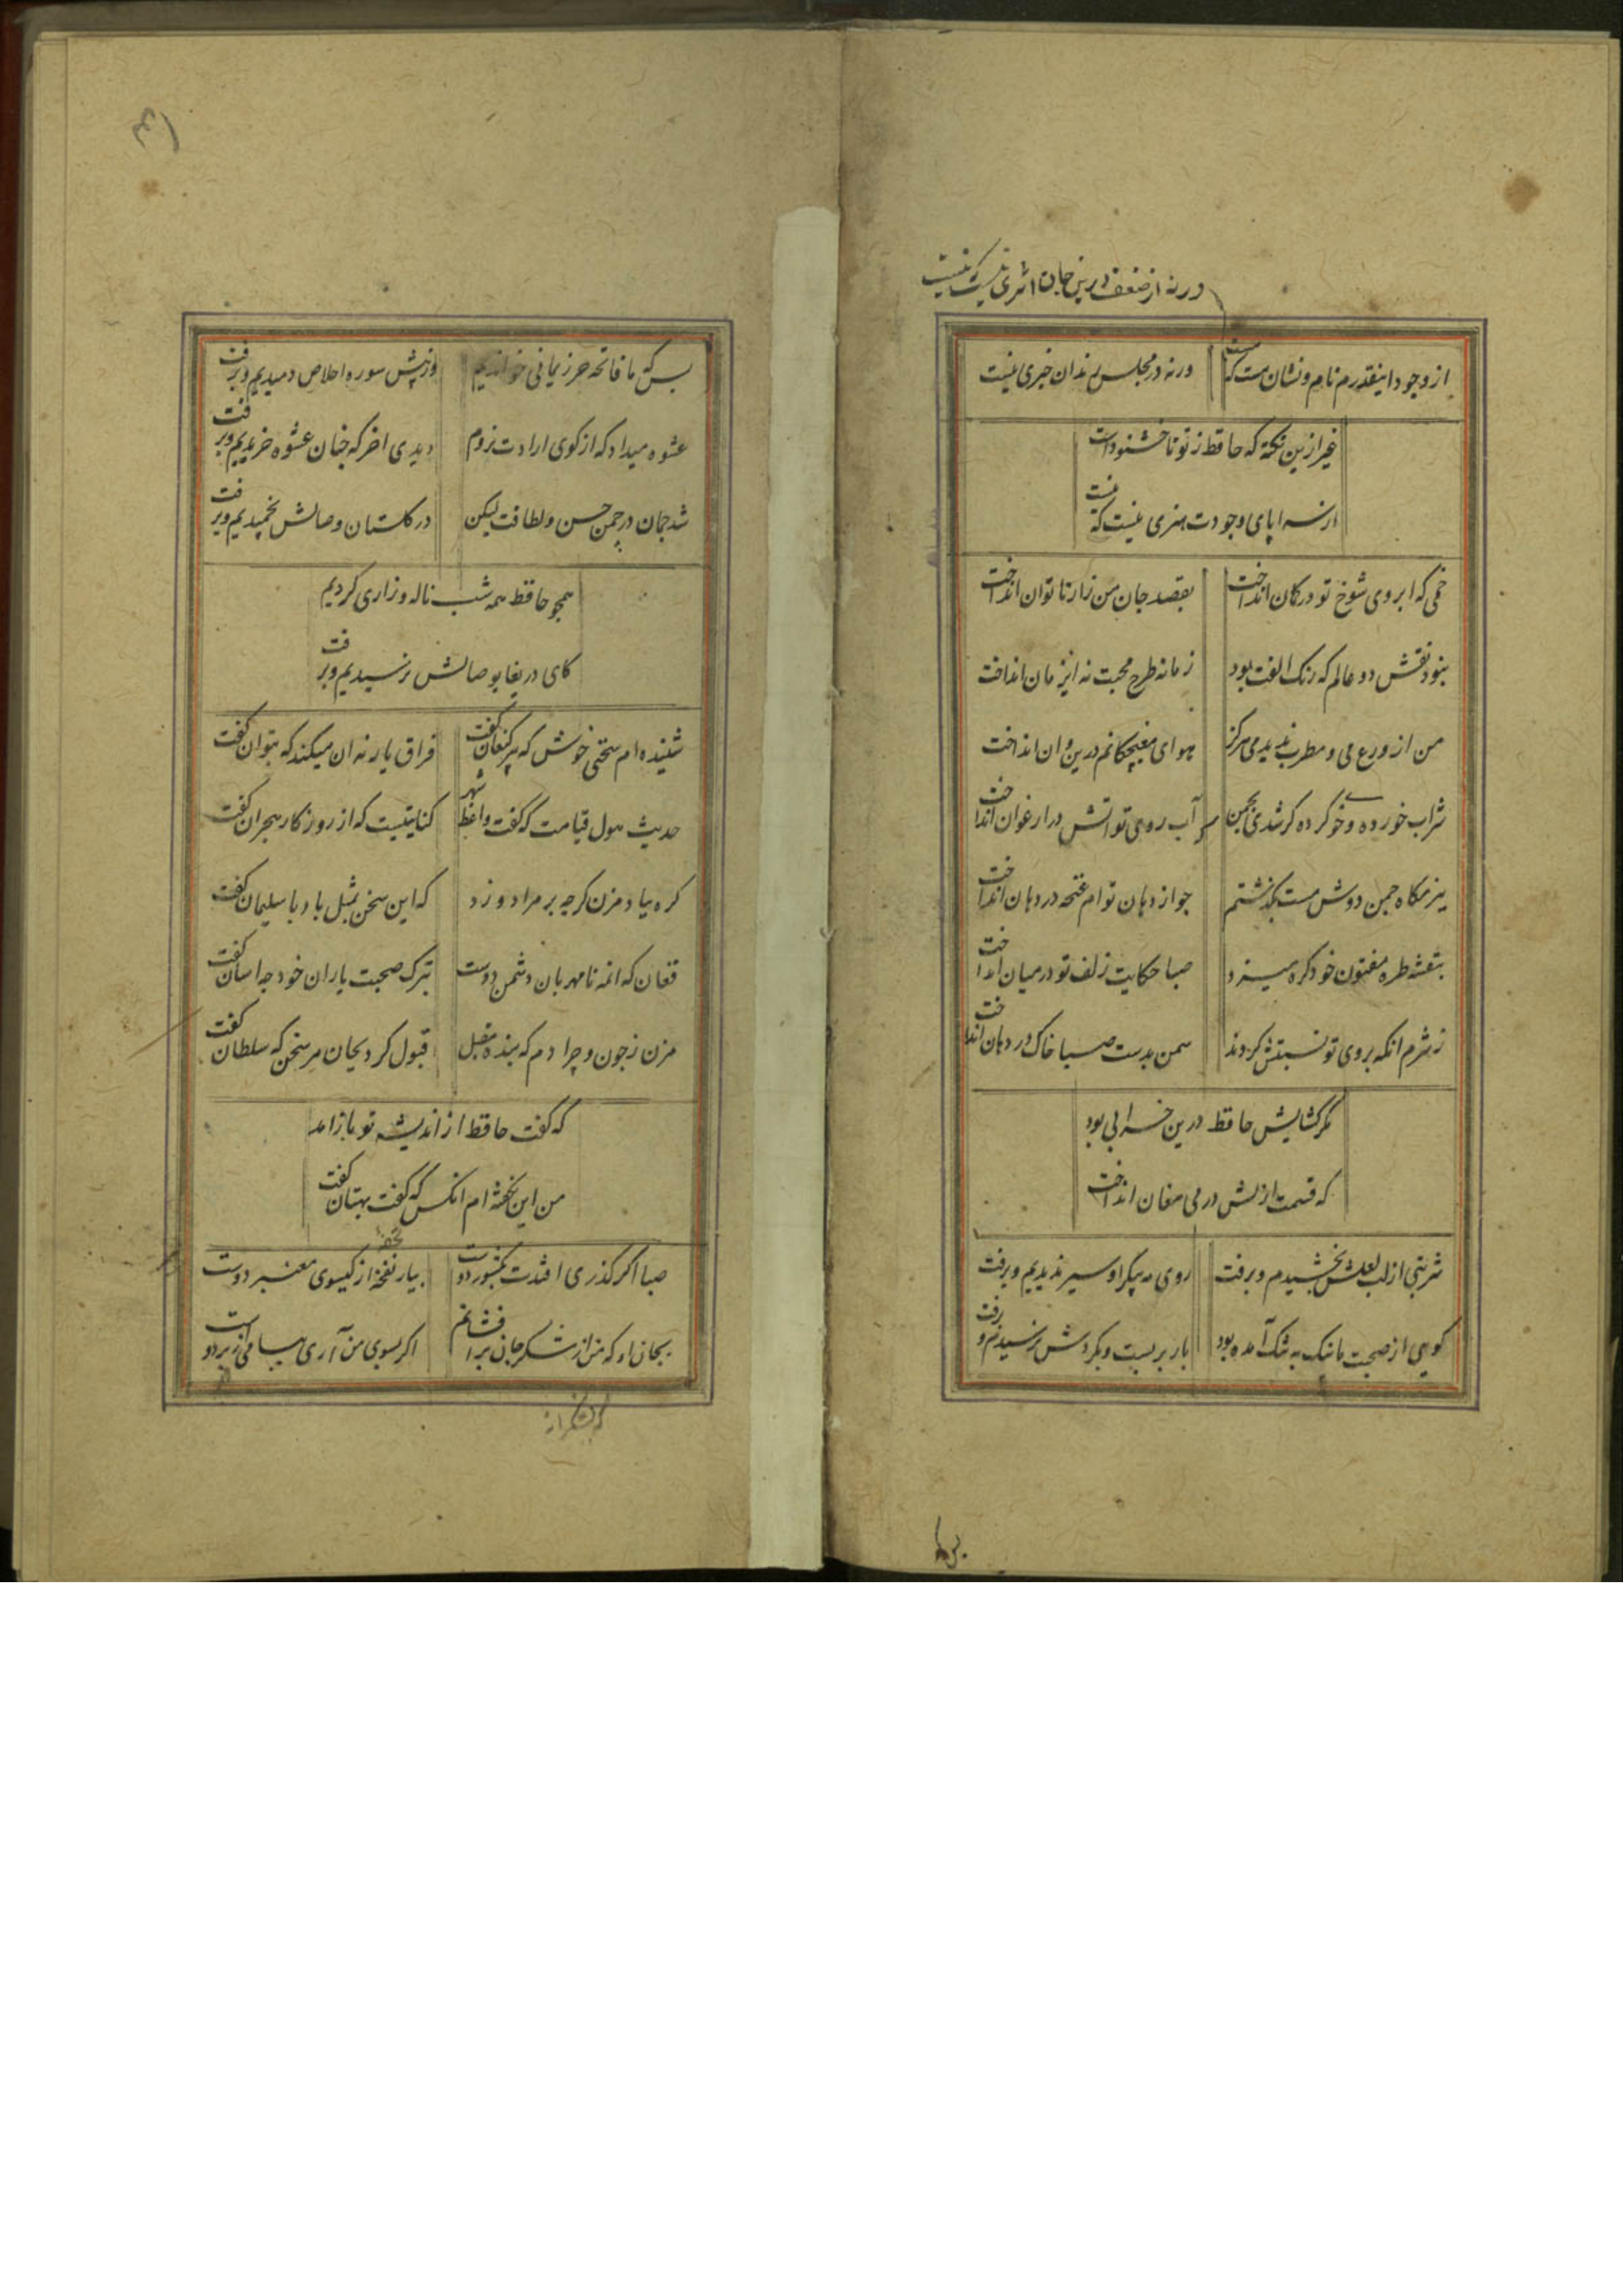 ورنه از ضعف درین جان اثری نیست که نیست
از وجود اینقدرم نام و نشان هست که هست ورنه در مجلس رندان خبری نیست
غیر ازین نکته که حافظ ز تو ناخشنودست
در سراپای وجودت هنری نیست که نیست
خمی که ابروی شوخ تو در کمان انداخت بقصد جان من زار ناتوان انداخت
نبود نقش دو عالم که رنگ الفت بود زمانه طرح محبت نه این زمان انداخت
من از ورع می و مطرب ندیدمی هرگز هوای مغبچکانم درین و ان انداخت
شراب خورده و خوی کرده کی شدی بچمن که آب روی تو اتش در ارغوان انداخت
ببزمگاه چمن دوش مست بگذشتم چو از دهان توام غنچه در دهان انداخت
بنفشه طره مفتون خود گره میزد صبا حکایت زلف تو در میان انداخت
ز شرم انکه بروی تو نسبتش کردند سمن بدست صبا خاک در دهان انداخت
مگر گشایش حافظ درین خرابی بود
که قسمت ازلش در می مغان انداخت
شربتی از لب لعلش نچشیدیم و برفت روی مه پیکر او سیر ندیدیم و برفت
گویی از صحبت ما نیک به تنگ آمده بود بار بربست و بگردش نرسیدیم و برفت
بس که ما فاتحه حرز یمانی خواندیم وز پیش سوره اخلاص دمیدیم و برفت
عشوه میداد که از کوی ارادت نروم دیدی اخر که چنان عشوه خریدیم و برفت
شد چمان در چمن حسن و لطافت لیکن در گلستان وصالش نچمیدیم و برفت
همچو حافظ همه شب ناله و زاری کردیم
کای دریغا بوصالش نرسیدیم و برفت
شنیده ام سخنی خوش که پیر کنعان گفت فراق یار نه ان میکند که بتوان گفت
حدیث هول قیامت که گفت واعظ شهر کنایتیست که از روزگار هجران گفت
گره بباد مزن گرچه بر مراد وزد که این سخن بمثل باد با سلیمان گفت
فغان که انمه نامهربان دشمن دوست بترک صحبت یاران خود چه اسان گفت
مزن ز چون و چرا دم که بنده مقبل قبول کرد بجان هر سخن که سلطان گفت
که گفت حافظ از اندیشه تو باز امد
من این نگفته ام انکس که گفت بهتان گفت
صبا اگر گذری افتدت بکشور دوست بیار نفحه از گیسوی معنبر دوست
تحفه
بجان او که من از شکر جان برافشانم اگر بسوی من آری پیامی از بر دوست